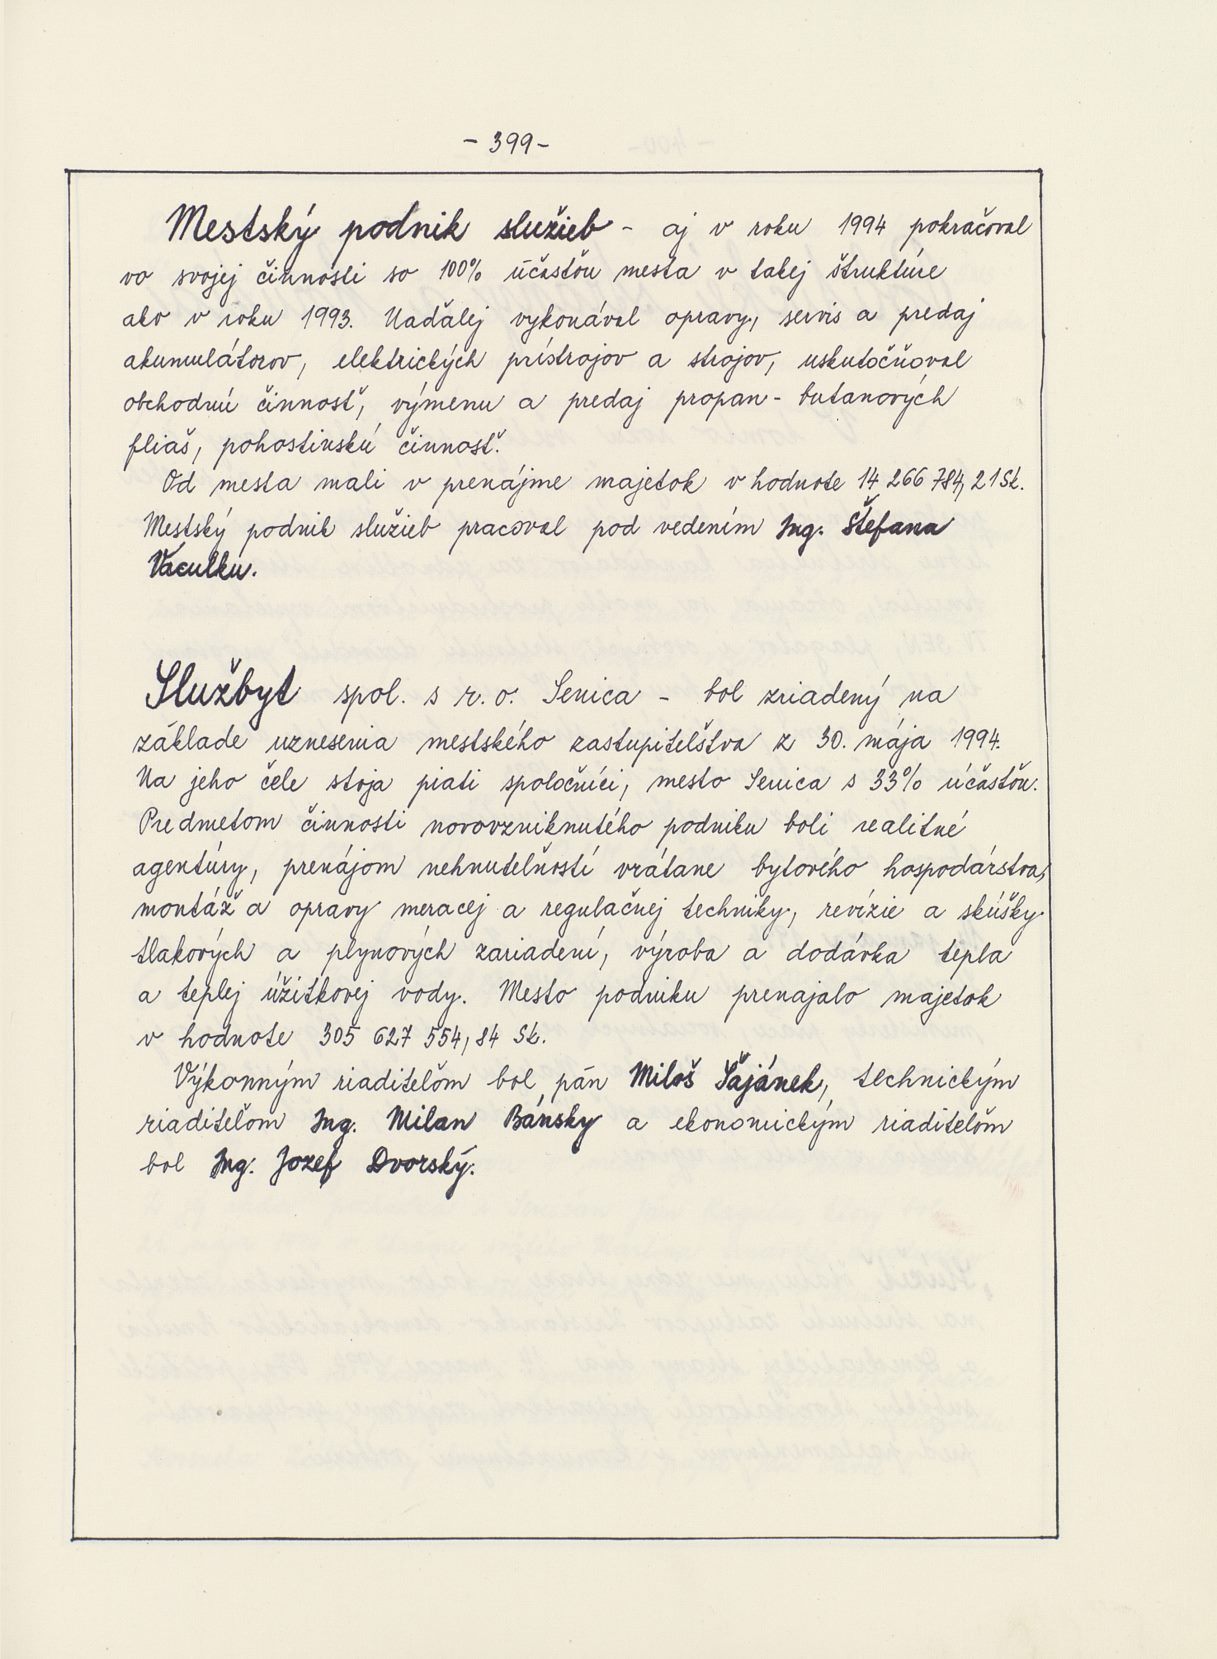 - 399 -
Mestský podnik služieb - aj v roku 1994 pokračoval
vo svojej činnosti so 100% účasťou mesta v takej štruktúre
ako v roku 1993. Naďalej vykonával opravy, servis a predaj
akumulátorov, elektrických prístrojov a strojov, uskutočňoval
obchodnú činnosť, výmenu a predaj propan-butanových
fliaš, pohostinskú činnosť.
Od mesta mali v prenájme majetok v hodnote 14 266 784,21 Sk.
Mestský podnik služieb pracoval pod vedením Ing. Štefana
Vaculku.
Službyt spol. s r. o. Senica - bol zriadený na
základe uznesenia mestského zastupiteľstva z 30. mája 1994.
Na jeho čele stoja piati spoločníci, mesto Senica s 33% účasťou.
Predmetom činnosti novovzniknutého podniku boli realitné
agentúry, prenájom nehnuteľností vrátane bytového hospodárstva,
montáž a opravy meracej a regulačnej techniky, revízie a skúšky
tlakových a plynových zariadení, výroba a dodávka tepla
a teplej úžitkovej vody. Mesto podniku prenajalo majetok
v hodnote 305 627 554,84 Sk.
Výkonným riaditeľom bol pán Miloš Šajánek, technickým
riaditeľom Ing. Milan Bánsky a ekonomickým riaditeľom
bol Ing. Jozef Dvorský.